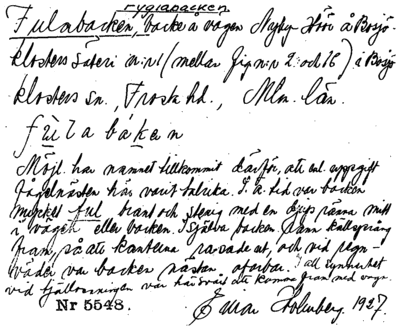 rygiabacken
Fulabacken, backe å vägen Nyby Höör å Bosjö-
klosters Säteri m:r 1 (mellan fig n:r 2 och 16) i Bosjö
klosters sn. Frosta hd., Mlm. län.
fulabaken
Möjl. har namnet tillkommit därför, att enl. uppgift
fågelnästen här varit talrika. F. ä. tid var backen
mycket ful, brant och stenig med en djup ränna mitt
i vägen eller backen. I själva backen rann källsprång
fram, så att kanterna rasade ut, och vid regn-
väder var backen nästan ofarbar." all synnerhet
vid tjällossningen var här svårt att komma fram med vagn.
Nr 5548. Einar Holmberg. 1927.